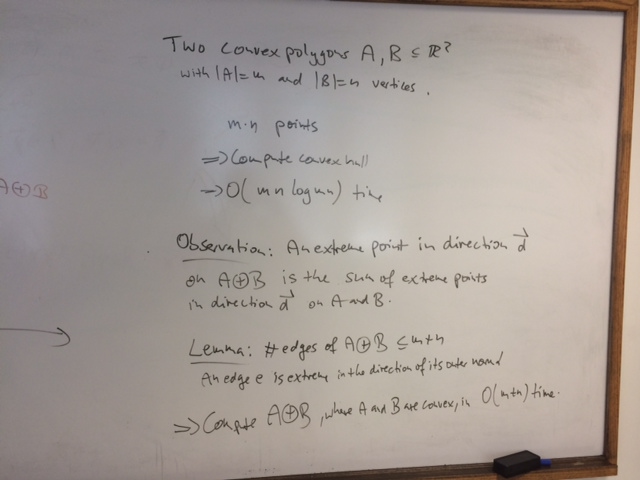 Two convex polygons A, B ⊆ ℝ²
with |A|=m and |B|=n vertices.
m·n points
⇒ Compute convex hull
→ O(mn log mn) time
A⊕B
Observation: An extreme point in direction d⃗
on A⊕B is the sum of extreme points
in direction d⃗ on A and B.
Lemma: # edges of A⊕B ≤ m+n
An edge e is extreme in the direction of its outer normal
⇒ Compute A⊕B, where A and B are convex, in O(m+n) time.